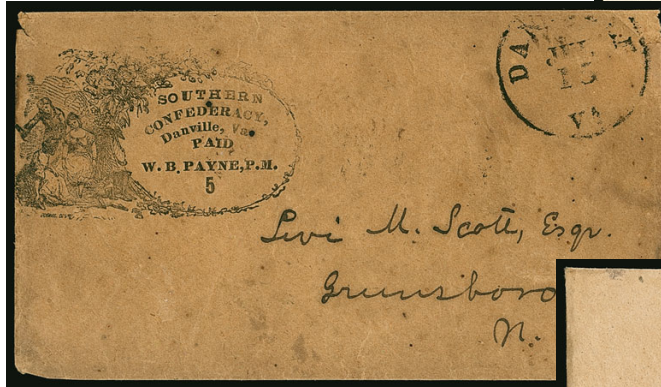 SOUTHERN
CONFEDERACY,
Danville, Va.
PAID
W. B. PAYNE, P.M.
5
VA
Levi M. Scott, Esqr.
Greensboro
N.